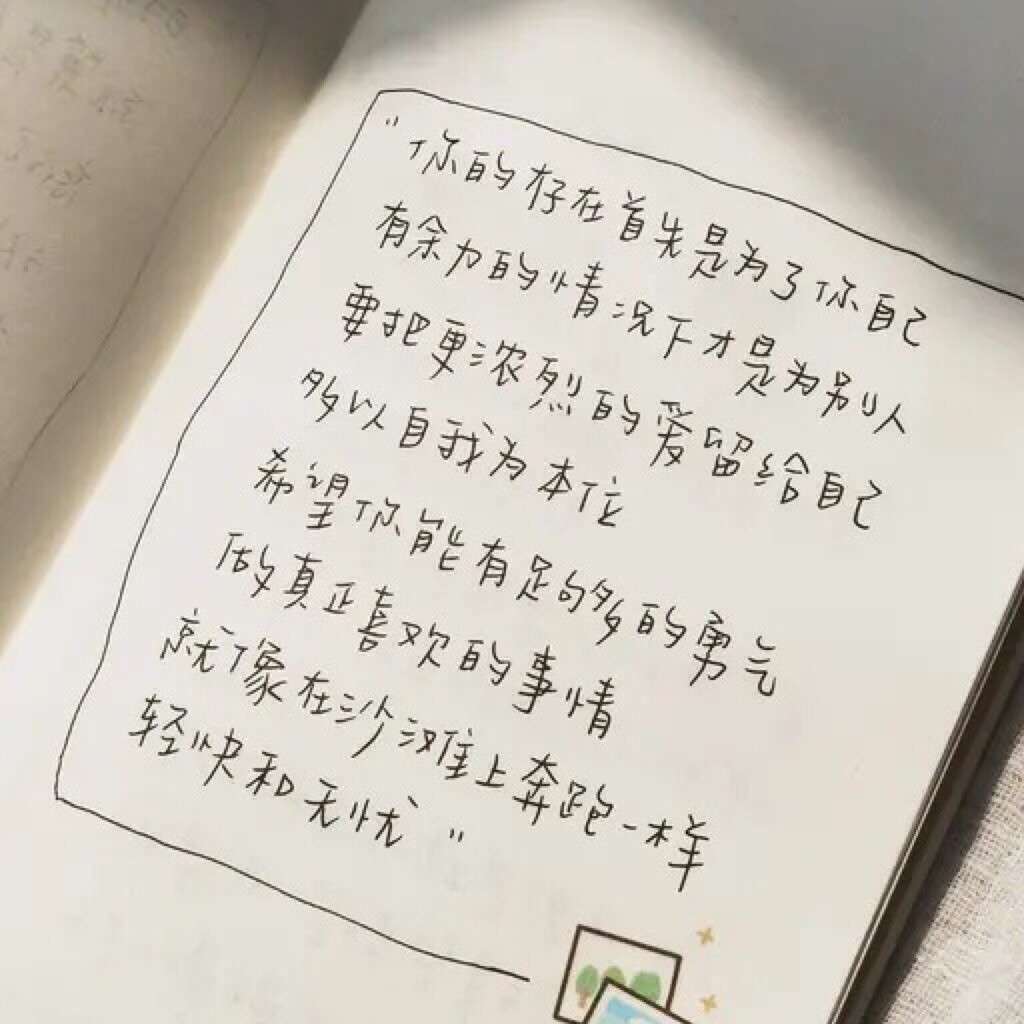 “你的存在首先是为了你自己
有余力的情况下才是为别人
要把更浓烈的爱留给自己
多以自我为本位
希望你能有足够多的勇气
做真正喜欢的事情
就像在沙滩上奔跑一样
轻快和无忧”